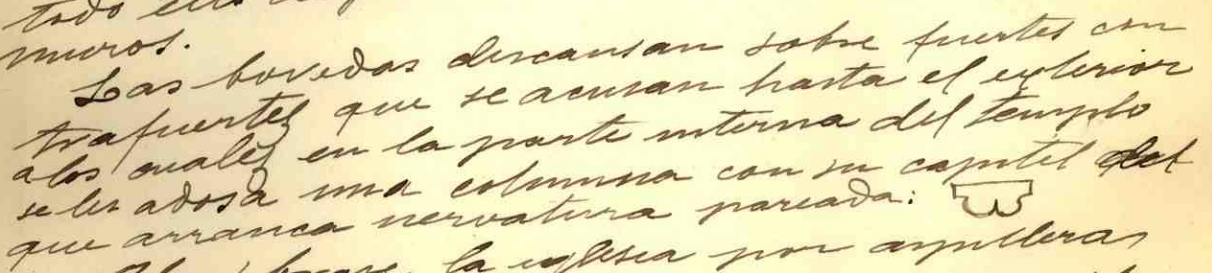 todo
muros.
Las bovedas descansan sobre fuertes con
trafuertes que se acusan hasta el exterior
a los cuales en la parte interna del templo
se les adosa una columna con su capitel del
que arranca nervatura pareada:
la iglesia por aspilleras